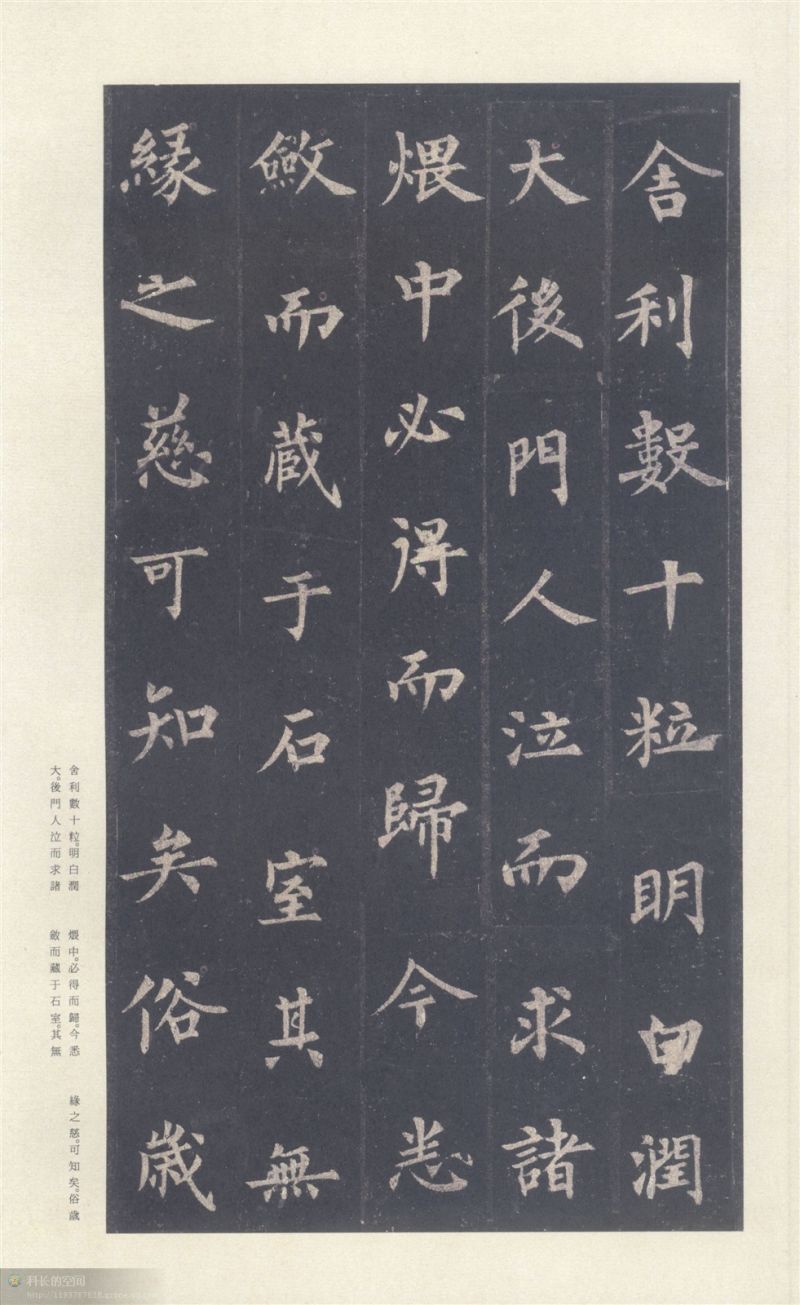 舍利數十粒明白潤
大後門人泣而求諸
煨中必得而歸今悉
斂而藏于石室其無
緣之慈可知矣俗歲
舍利數十粒。明白潤
大。後門人泣而求諸
煨中。必得而歸。今悉
斂而藏于石室。其無
緣之慈。可知矣。俗歲
科长的空间